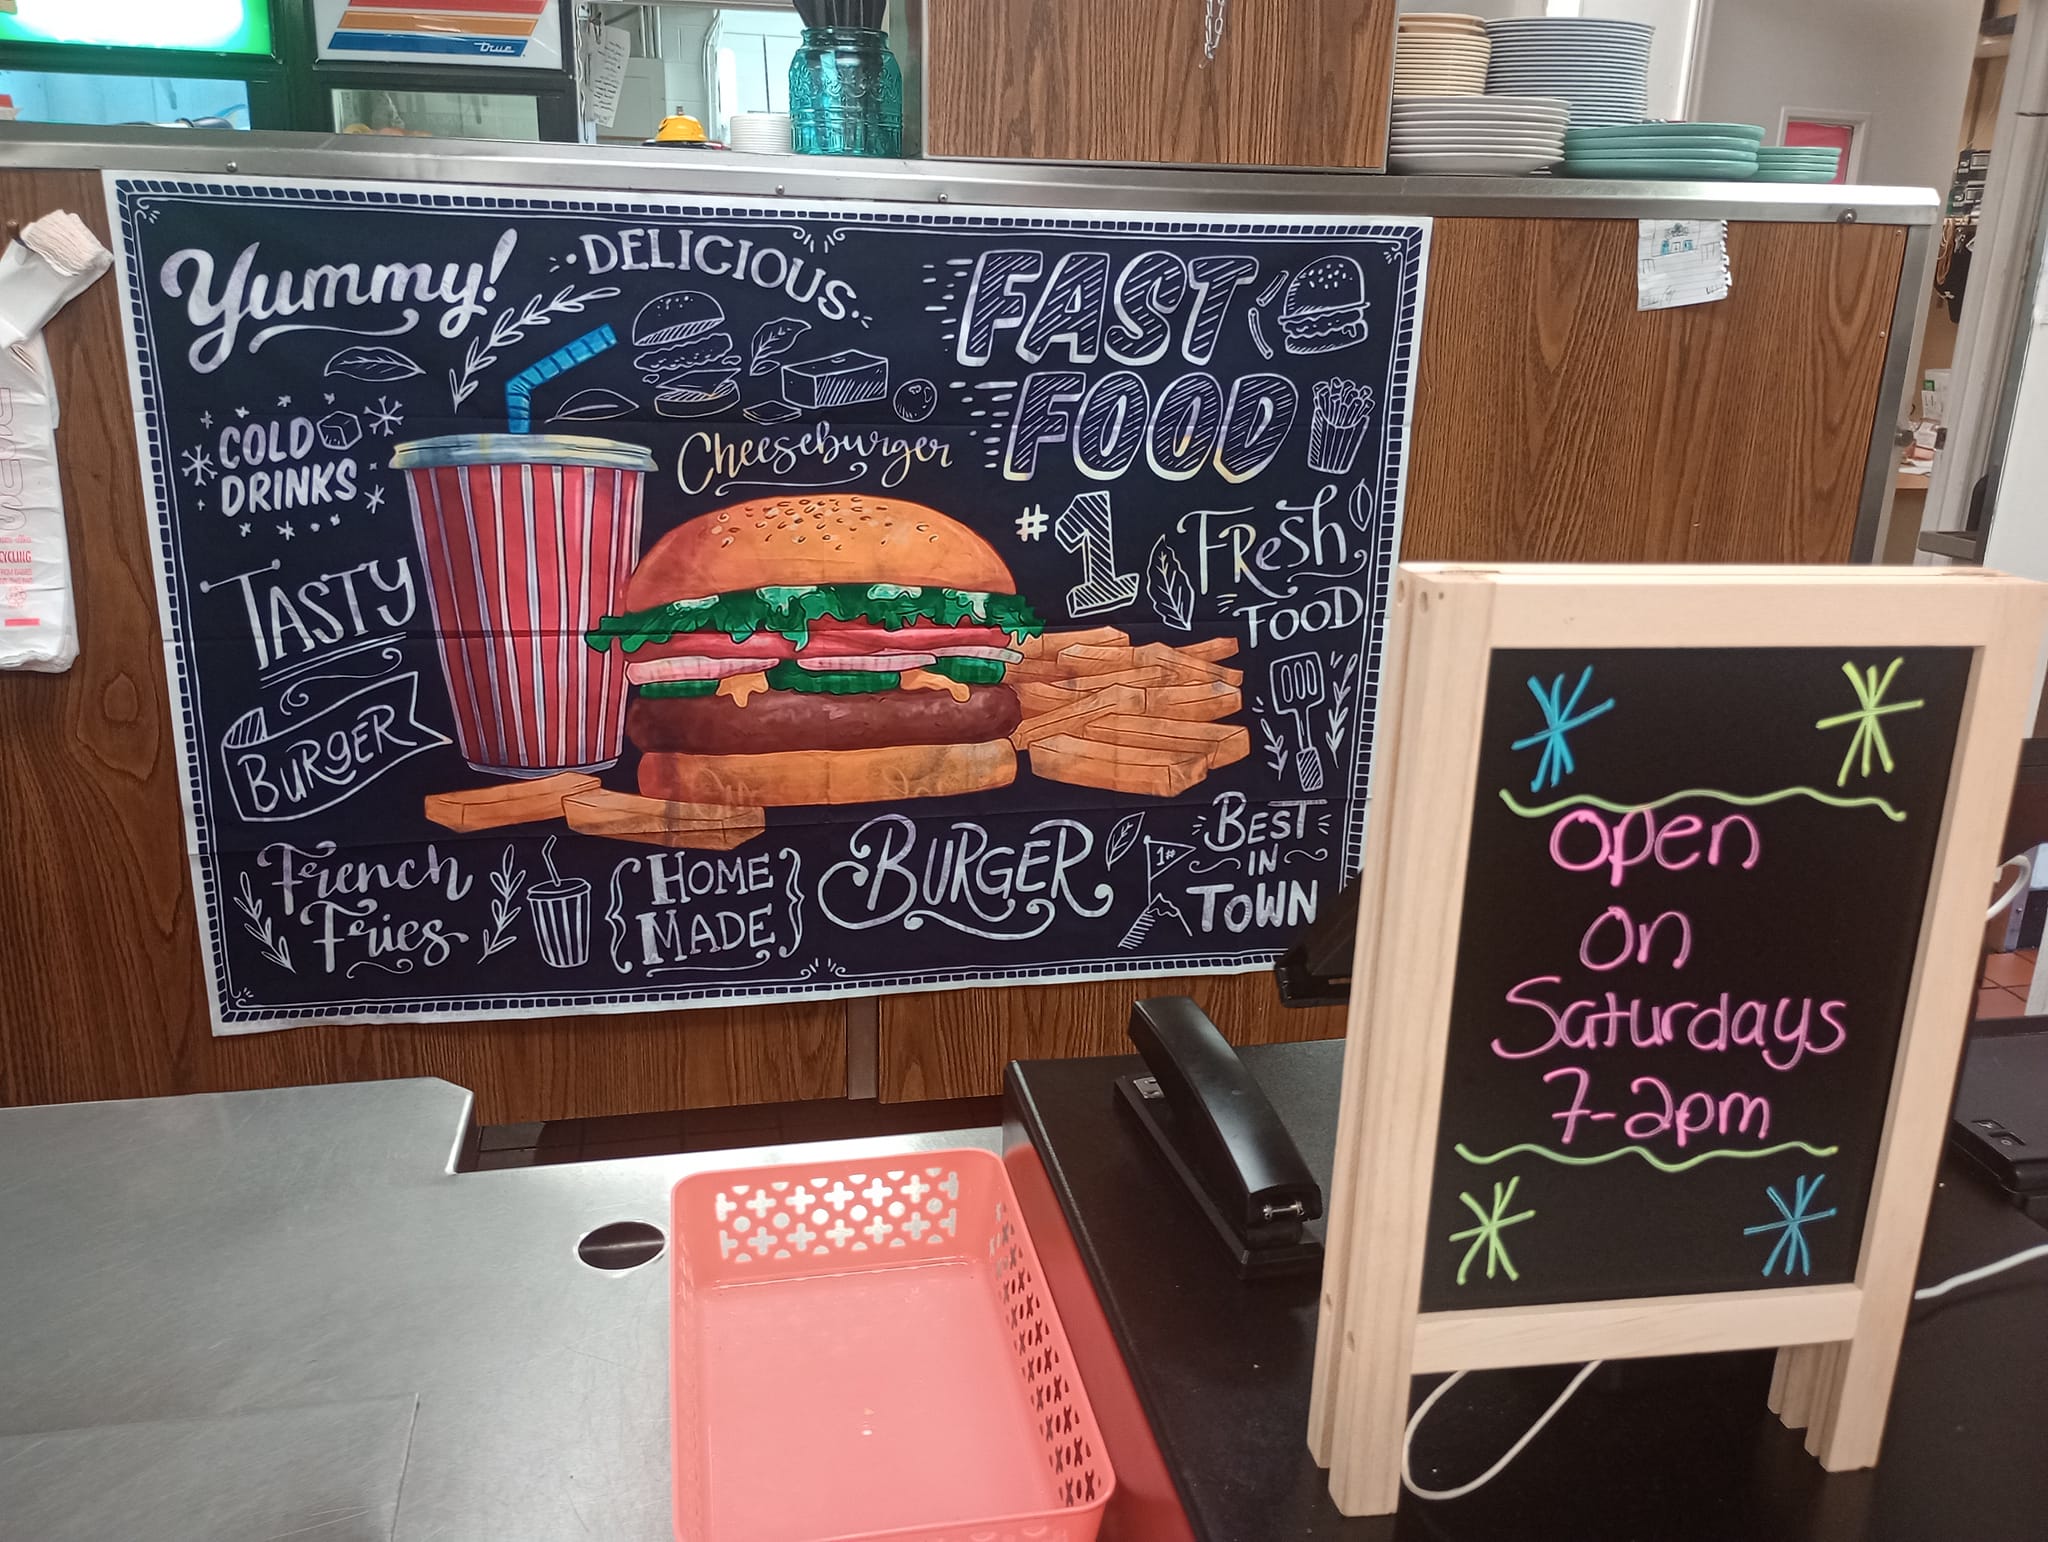 True
Yummy!
DELICIOUS
FAST
FOOD
COLD
DRINKS
Cheeseburger
#1
FResH
FOOD
TASTY
BURgER
French
Fries
HOME
MADE
BURGER
1#
BEST
IN
TOWN
CYCLING
open
on
Saturdays
7-2pm